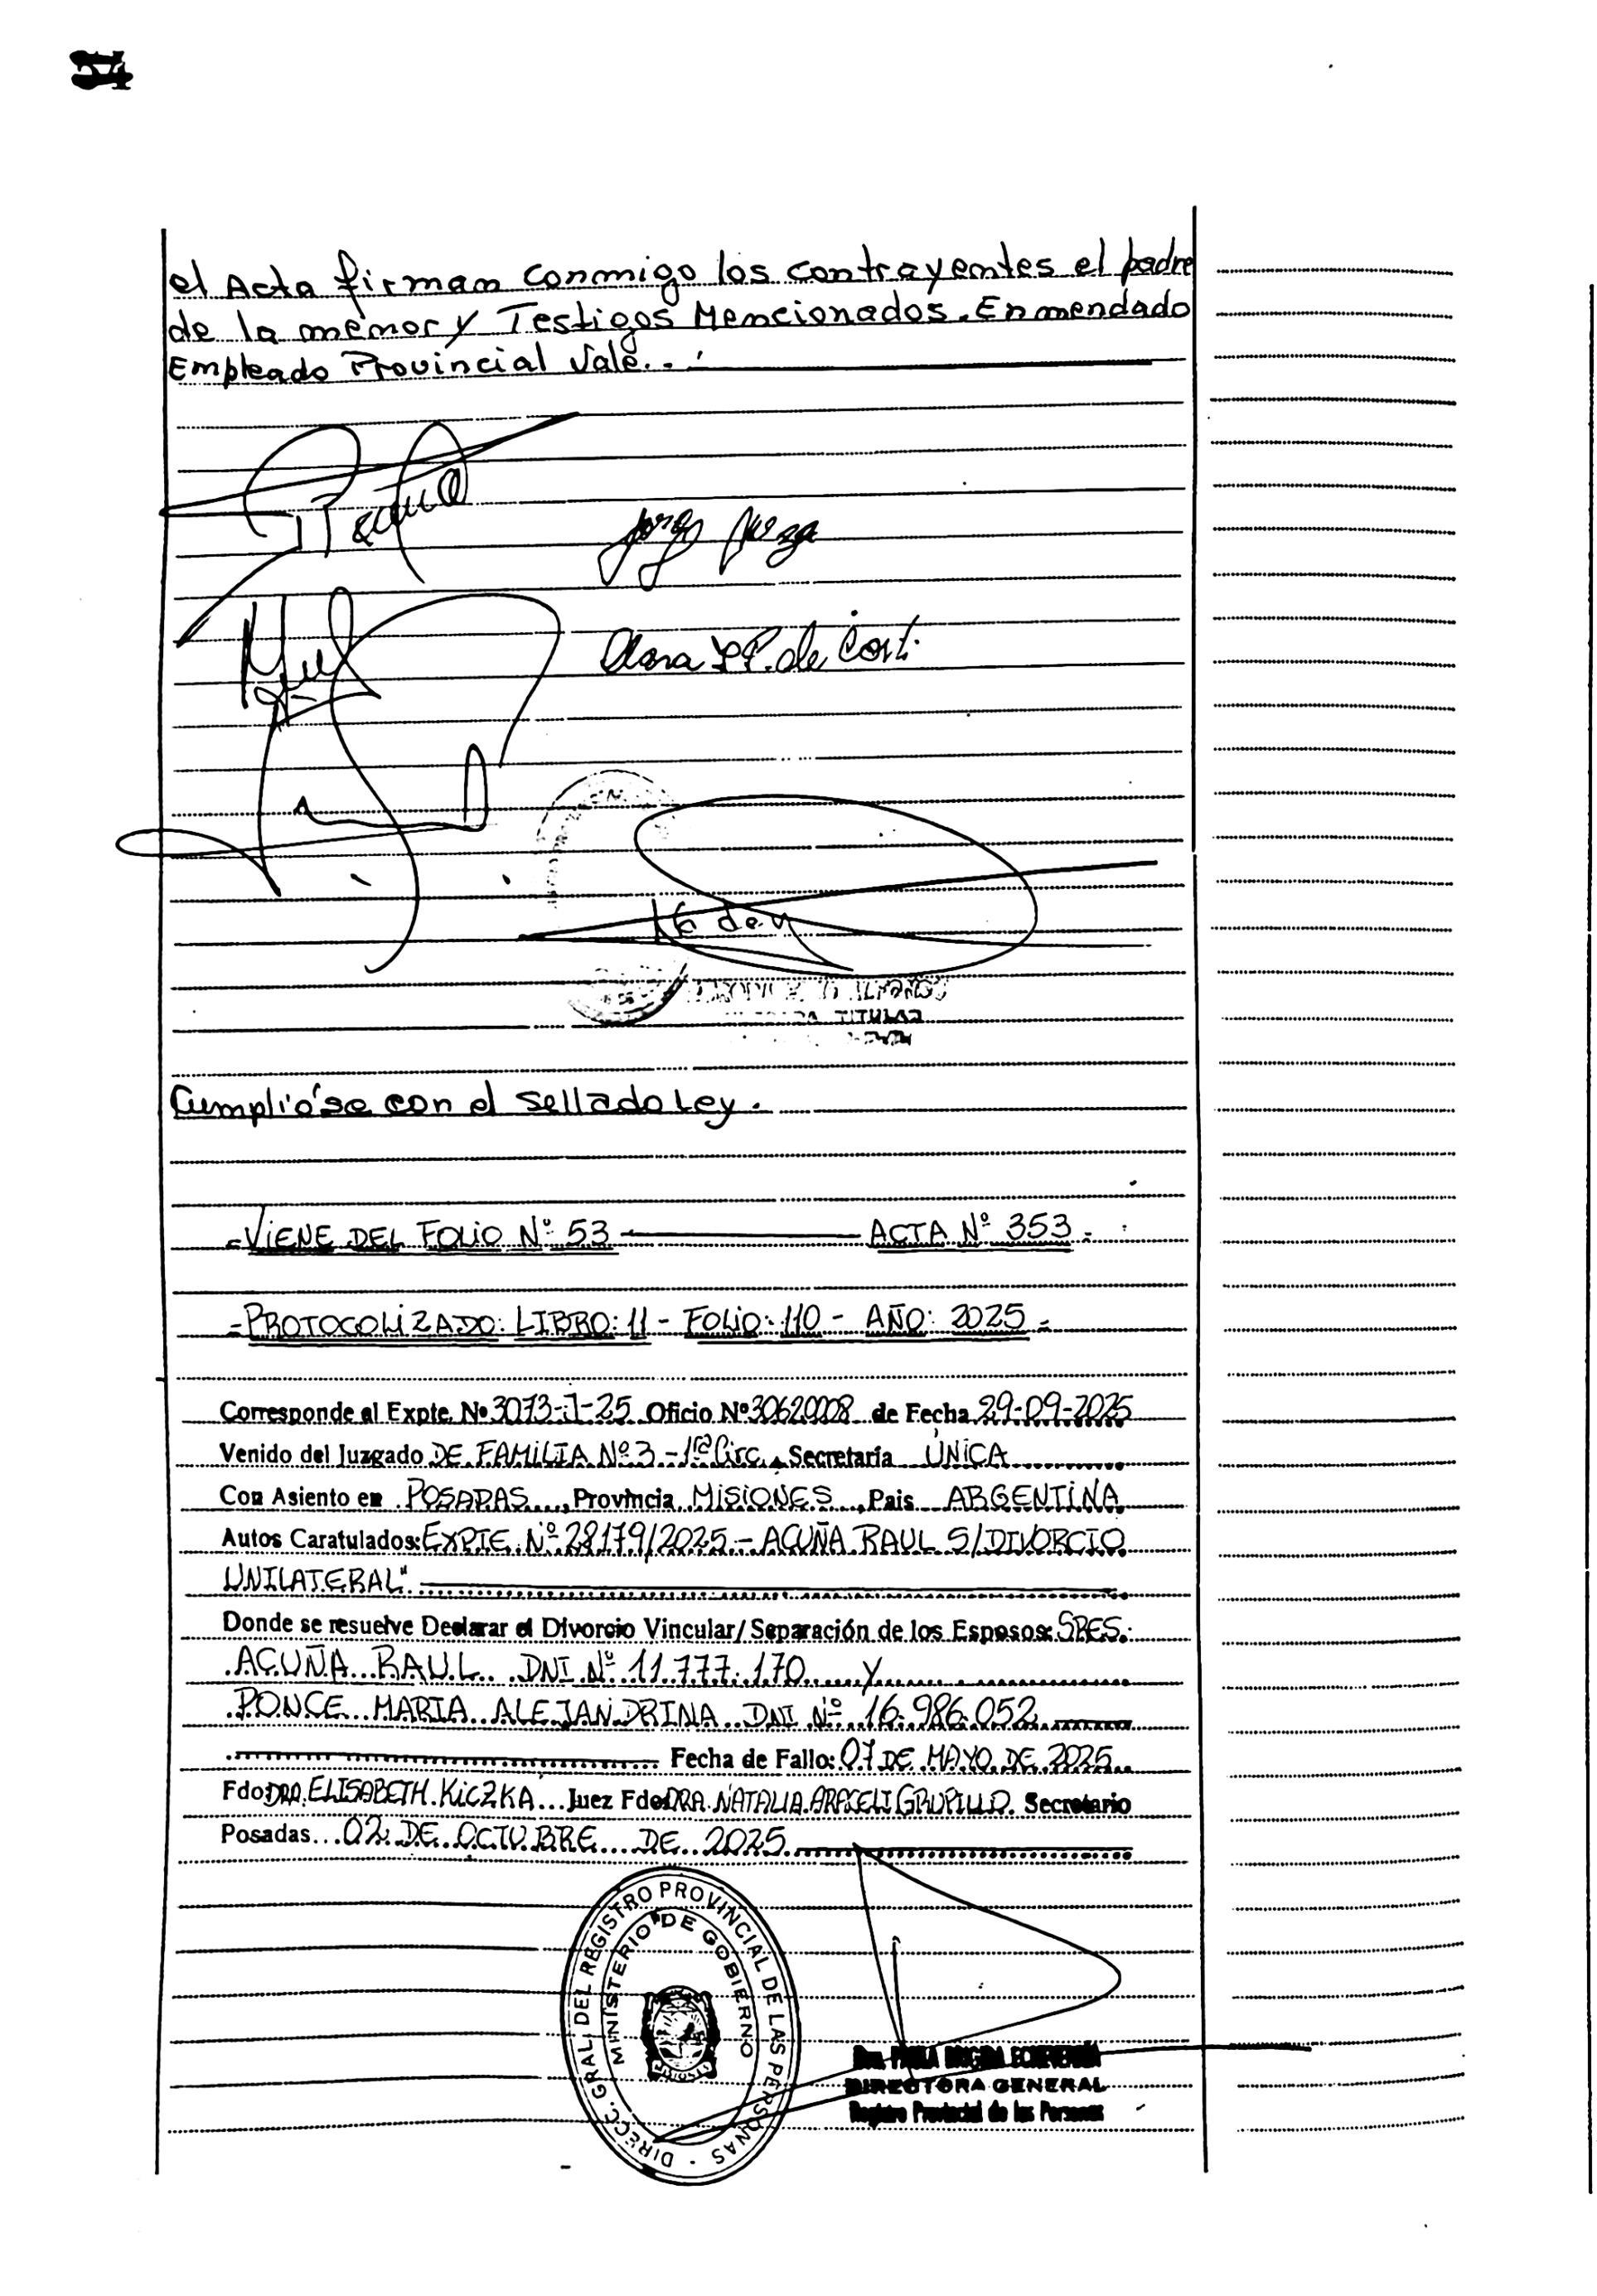 54
el Acta firman conmigo los contrayentes el padre
de la menor y Testigos Mencionados. Enmendado
Empleado Provincial Vale.-
Clara de
TITULAR
Cumplióse con el sellado Ley.
-VIENE DEL FOLIO Nº 53 ACTA Nº 353-
-PROTOCOLIZADO: LIBRO: 11 - FOLIO: 110 - AÑO: 2025-
Corresponde al Expte. Nº 3073-J-25 Oficio Nº 30620008 de Fecha 29-09-2025
Venido del Juzgado DE FAMILIA Nº 3 - 1ra Circ. Secretaría ÚNICA
Con Asiento en POSADAS, Provincia MISIONES, Pais ARGENTINA
Autos Caratulados: EXPTE. Nº 28179/2025 - ACUÑA RAUL S/DIVORCIO
UNILATERAL"
Donde se resuelve Declarar el Divorcio Vincular/ Separación de los Esposos: SRES.
ACUÑA RAUL DNI Nº 11.777.170 y
PONCE MARIA ALEJANDRINA DNI Nº 16.986.052
Fecha de Fallo: 07 DE MAYO DE 2025
Fdo DRA. ELISABETH KICZKA Juez Fdo DRA. NATALIA ARACELI Secretario
Posadas 02 DE OCTUBRE DE 2025
DIRECC. GRAL. DEL REGISTRO PROVINCIAL DE LAS PERSONAS
MINISTERIO DE GOBIERNO
DIRECTORA GENERAL
Registro Provincial de las Personas